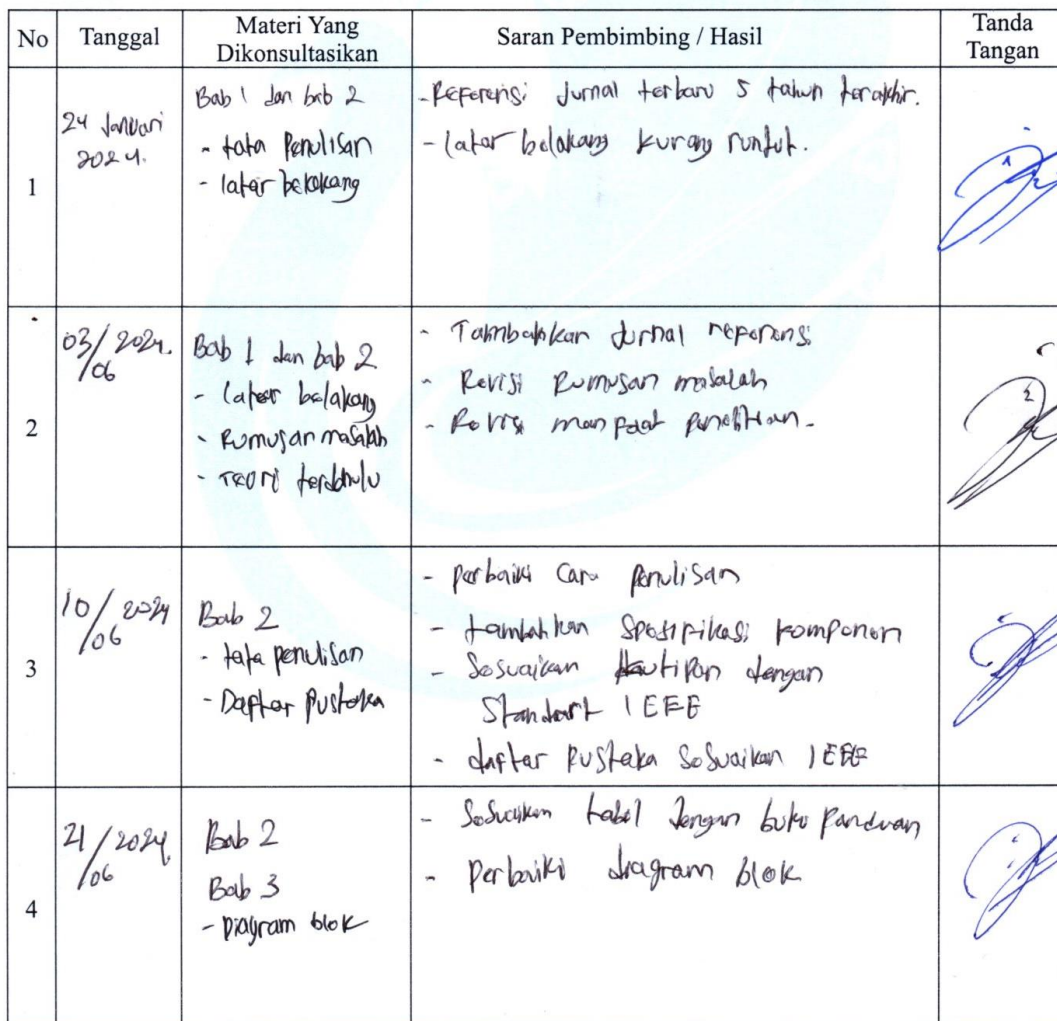 No
Tanggal
Materi Yang
Dikonsultasikan
Saran Pembimbing / Hasil
Tanda
Tangan
1
24 Januari
2024.
Bab 1 dan bab 2
- tata Penulisan
- latar belakang
- Referensi Jurnal terbaru 5 tahun terakhir.
- latar belakang kurang runtut.
2
03/06 2024.
Bab 1 dan bab 2
- latar belakang
- Rumusan masalah
- Teori terdahulu
- Tambahkan Jurnal referensi
- Revisi Rumusan masalah
- Revisi manfaat penelitian.
3
10/06 2024
Bab 2
- tata penulisan
- Daftar Pustaka
- perbaiki Cara Penulisan
- tambahkan Spesifikasi komponen
- Sesuaikan kutipan dengan
Standart IEEE
- daftar Pustaka Sesuaikan IEEE
4
21/06 2024
Bab 2
Bab 3
- Diagram blok
- Sesuaikan tabel dengan buku Panduan
- Perbaiki diagram blok